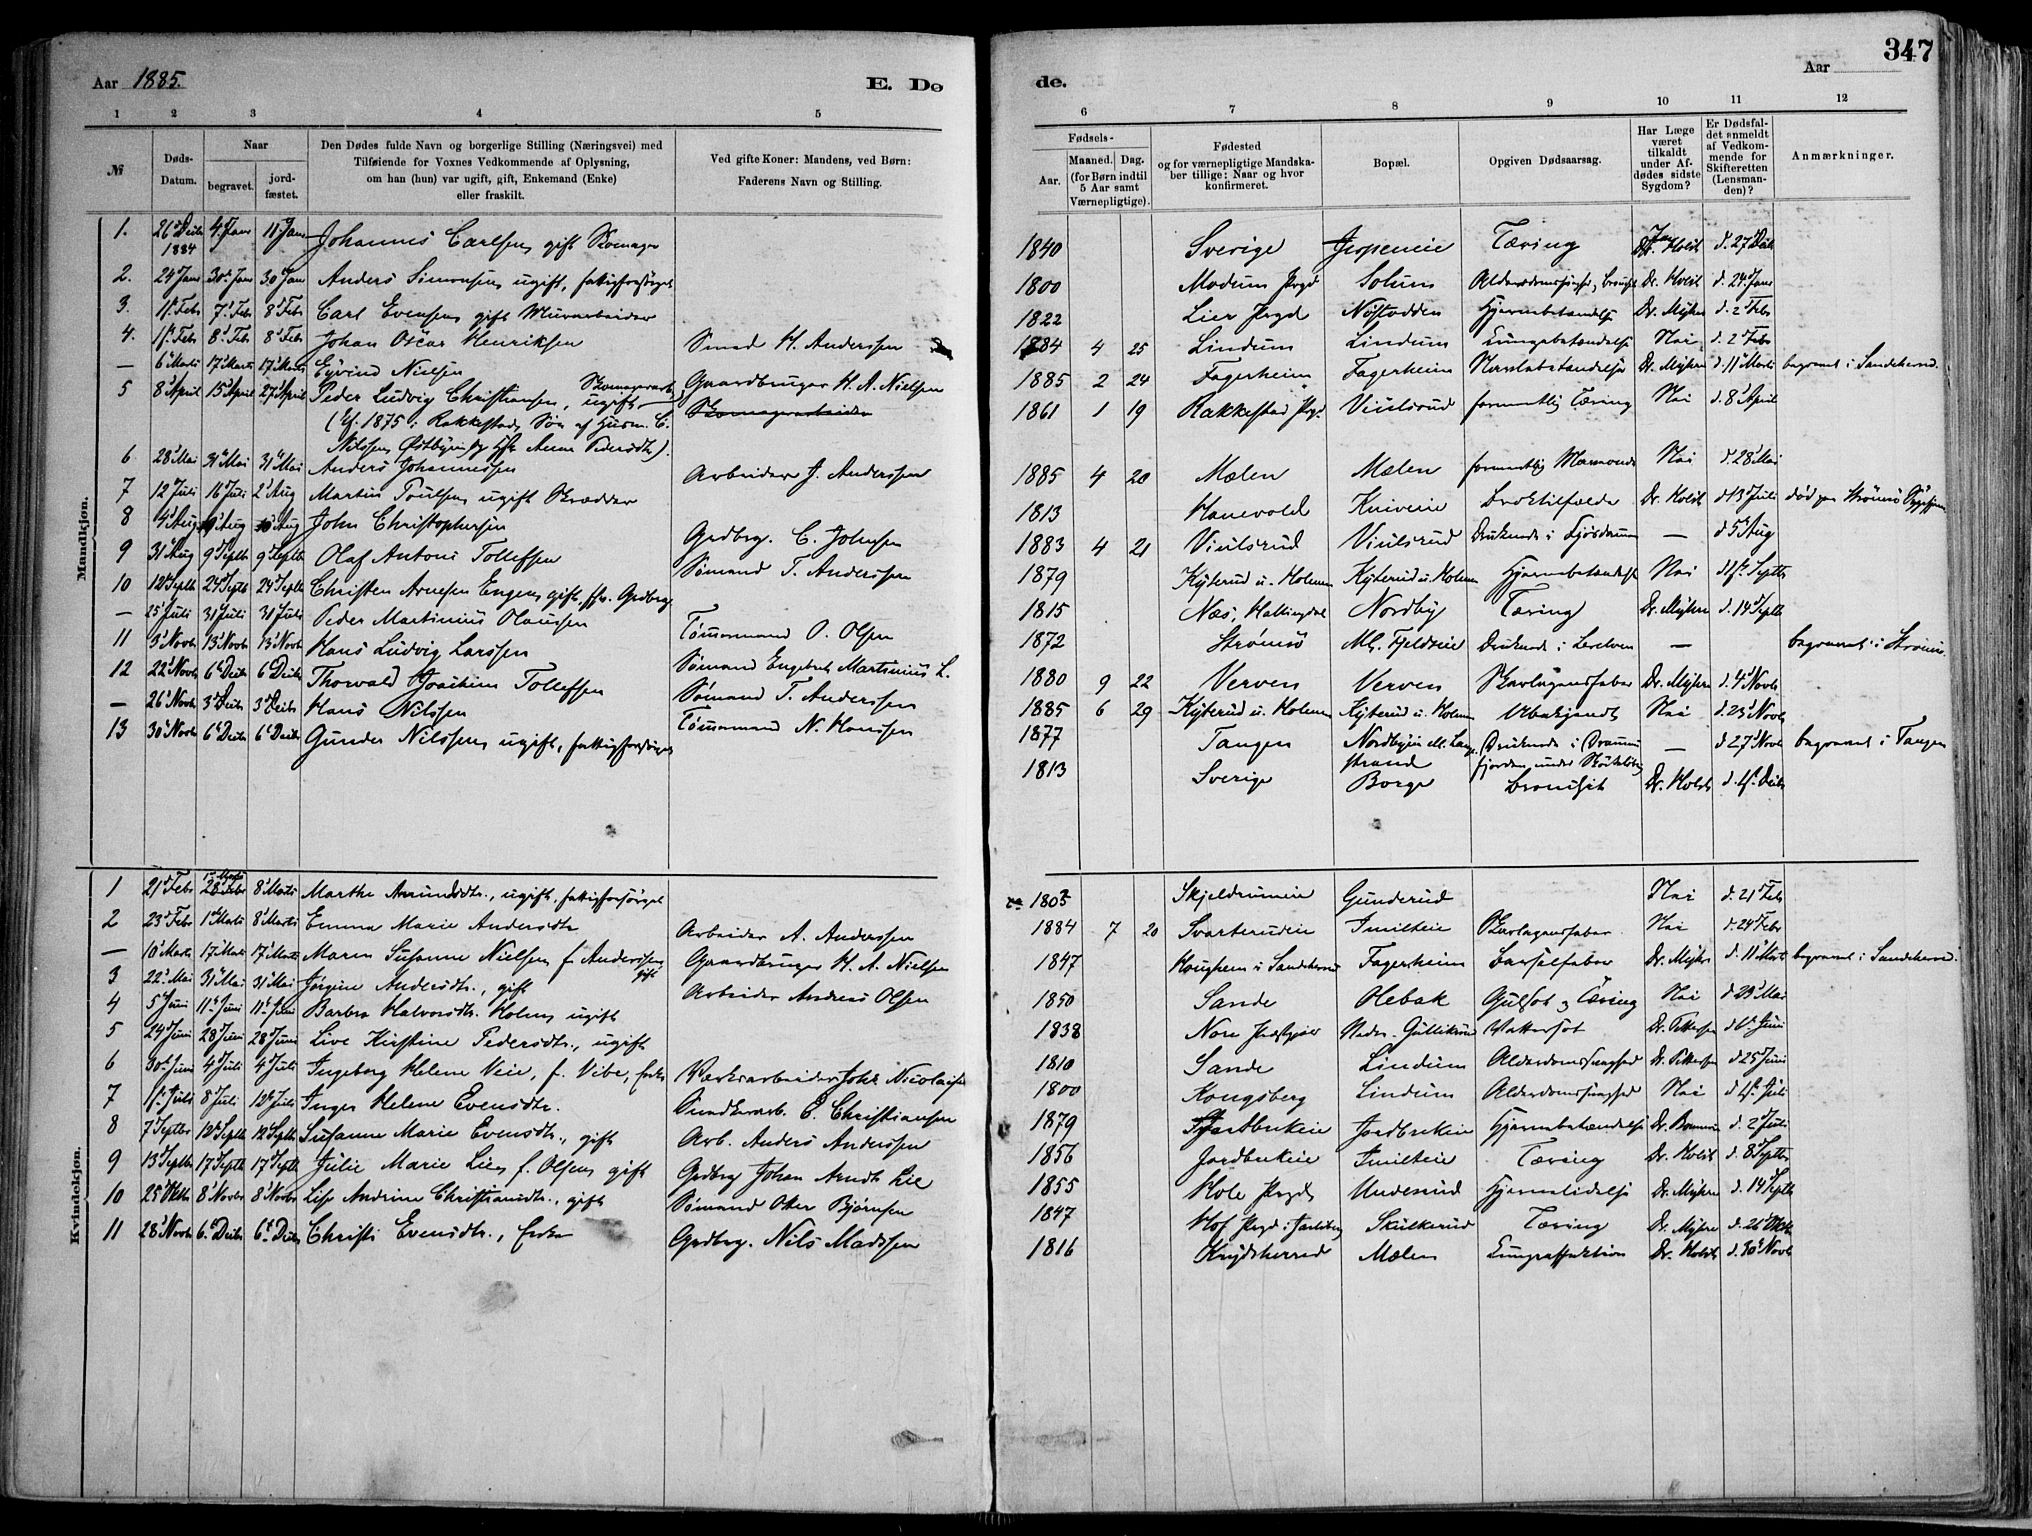 347
Aar 1885.
E. Dø
de.
Aar
1 2 3 4 5 6 7 8 9 10 11 12
№
Døds-Datum.
Naar
begravet.
jord-fæstet.
Den Dødes fulde Navn og borgerlige Stilling (Næringsvei) med
Tilføiende for Voxnes Vedkommende af Oplysning,
om han (hun) var ugift, gift, Enkemand (Enke)
eller fraskilt.
Ved gifte Koner: Mandens, ved Børn:
Faderens Navn og Stilling.
Fødsels-
Aar.
Maaned. Dag.
(for Børn indtil
5 Aar samt
Værnepligtige).
Fødested
og for værnepligtige Mandska-
ber tillige: Naar og hvor
konfirmeret.
Bopæl.
Opgiven Dødsaarsag.
Har Læge
været
tilkaldt
under Af-
dødes sidste
Sygdom?
Er Dødsfal-
det anmeldt
af Vedkom-
mende for
Skifteretten
(Lensman-
den)?
Anmærkninger.
Mandkjøn.
1. 26 Decbr 1884 4. Janr 11 Janr Johannes Carlsen gift Skomager 1840 Sverige Tæring Dr. Holst d. 27 Decbr
2. 24 Janr 30 Janr 30 Janr Anders Simonsen ugift, fattigforsørget 1800 Modum Prgd Solum Dr. Holst d. 24 Janr
3. 1 Febr 7 Febr 8 Febr Carl Evensen gift Murarbeider 1822 Lier Prgd Nøstodden Hjernebetændelse Dr. Myhre d. 2 Febr
4. 1 Febr 8 Febr 8 Febr Johan Oscar Henriksen Smed H. Anderssen 1884 4 25 Lindum Lindum Lungebetændelse Nei d. 2 Febr
— 6 Marts 17 Marts 17 Marts Eyvind Nielsen Gaardbruger H. A. Nielsen 1885 2 24 Fagerheim Fagerheim Dr. Myhre d. 11 Marts begravet i Sandeherred.
5 8 April 15 April 27 April Peder Ludvig Christiansen, ugift Skomagerarb. Skomagerarbeider 1861 1 19 Rakkestad Prgd Viulsrud formentlig Tæring Nei d. 8 April
(Cf. 1875 i Rakkestad, Søn af Husm. C.
Nilssen Østbyeie og Hu Anne Pedersdtr).
6 28 Mai 31 Mai 31 Mai Anders Johannessen Arbeider J. Anderssen 1885 4 20 Mælen Mælen formentlig Nei d. 28 Mai
7 12 Juli 16 Juli 2 Aug Martin Poulsen ugift Skrædder 1813 Hanevold Kniveie Broktilfælde Dr. Holst d. 13 Juli død paa Strømsø Sygehjem
8 4 Aug 9 Aug Aug John Christophersen Grdbrg. C. Johnsen 1883 4 21 Viulsrud Viulsrud Druknede i — d. 5 Aug
9 31 Aug 9 Septbr 9 Septbr Olaf Anton Tollefsen Sømand T. Anderssen 1879 Kyterud u. Holmen Kyterud u. Holmen Hjernebetændelse Nei d. 1 Septbr
10 12 Septbr 24 Septbr 24 Septbr Christen Arnesen Engen gift, fhv. Grdbrg 1815 Næs, Hallingdal Nordby Tæring Dr. Myhre d. 14 Septbr
— 25 Juli 31 Juli 31 Juli Peder Martinius Olaussen Tømmermand O. Olsen 1872 Strømsø Ml. Fjeldeie Druknede i — begravet i Strømsø.
11 3 Novbr 13 Novbr 13 Novbr Hans Ludvig Larssen Sømand Engebret Martinius L. 1880 9 22 Verven Verven Skarlagensfeber Dr. Myhre d. 4 Novbr
12 22 Novbr 6 Decbr 6 Decbr Thorvald Joachim Tollefsen Sømand T. Anderssen 1885 6 29 Kyterud u. Holmen Kyterud u. Holmen Ubekjendt Nei d. 23 Novbr
— 26 Novbr 3 Decbr 3 Decbr Hans Nilssen Tømmermand N. Hanssen 1877 Tangen Nordbyeie Ml. Lange-strand Druknede i Drammens-fjorden under — d. 27 Novbr begravet i Tangen
13 30 Novbr 6 Decbr 6 Decbr Gunder Nilssen, ugift, fattigforsørget 1813 Sverige Borge Bronchit Dr. Holst d. 1 Decbr
Kvindekjøn.
1 21 Febr 28 Febr 1 Marts 8 Marts Marthe Amundsdtr., ugift, fattigforsørget 1803 Skjeldrumeie Gunderud Nei d. 21 Febr
2 23 Febr 1 Marts 8 Marts Emma Marie Andersdtr Arbeider A. Anderssen 1884 7 20 Svarterudeie Imilteie Skarlagensfeber Nei d. 24 Febr
— 10 Marts 17 Marts 17 Marts Maren Susanne Nielsen f. Anderssen gift Gaardbruger H. A. Nielsen 1847 Haughem i Sandeherred Fagerheim Barselfeber Dr. Myhre d. 11 Marts begravet i Sandeherred.
3 22 Mai 31 Mai 31 Mai Jørgine Andersdtr., gift Arbeider Andreas Olsen 1850 Sande Olebak Gulsot og Tæring Nei d. 23 Mai
4 5 Juni 11 Juni 11 Juni Barbro Halvorsdtr. Holm, ugift 1838 Nore Nedre Gullikrud Vattersot Dr. Pettersen d. 6 Juni
5 24 Juni 28 Juni 28 Juni Live Kirstine Pedersdtr., ugift 1810 Sande Lindum Alderdomssvaghed Dr. Pettersen d. 25 Juni
6 30 Juni 4 Juli 4 Juli Ingeborg Helene Veie, f. Vibe, Enke Værksarbeider Joh. Nicolaisen 1800 Kongsberg Lindum Alderdomssvaghed Nei d. 1 Juli
7 1 Juli 8 Juli 12 Juli Inger Helene Evensdtr. Smedkerarb. E. Christiansen 1879 Jordbrekeie Jordbrekeie Hjernebetændelse d. 2 Juli
8 7 Septbr 12 Septbr 12 Septbr Susanne Marie Evensdtr., gift Arb. Anders Anderssen 1856 Jordbrekeie Imilteie Tæring Dr. Holst d. 8 Septbr
9 13 Septbr 17 Septbr 17 Septbr Julie Marie Lie, f. Olsen, gift Grdbrg Johan Arndt Lie 1855 Hole Prgd Underud Hjernelidelse Dr. Myhre d. 14 Septbr
10 25 Oktbr 8 Novbr 8 Novbr Lise Andrine Christiansdtr., gift Sømand Otter Bjørnsen 1847 Hof Prgd i Jarlsberg Skulkerud Tæring Dr. Myhre d. 26 Oktbr
11 28 Novbr 6 Decbr 6 Decbr Christi Evensdtr., Enke Grdbrg. Nils Madssen 1816 Krydsherred Mælen Lungeaffektion Dr. Holst d. 30 Novbr